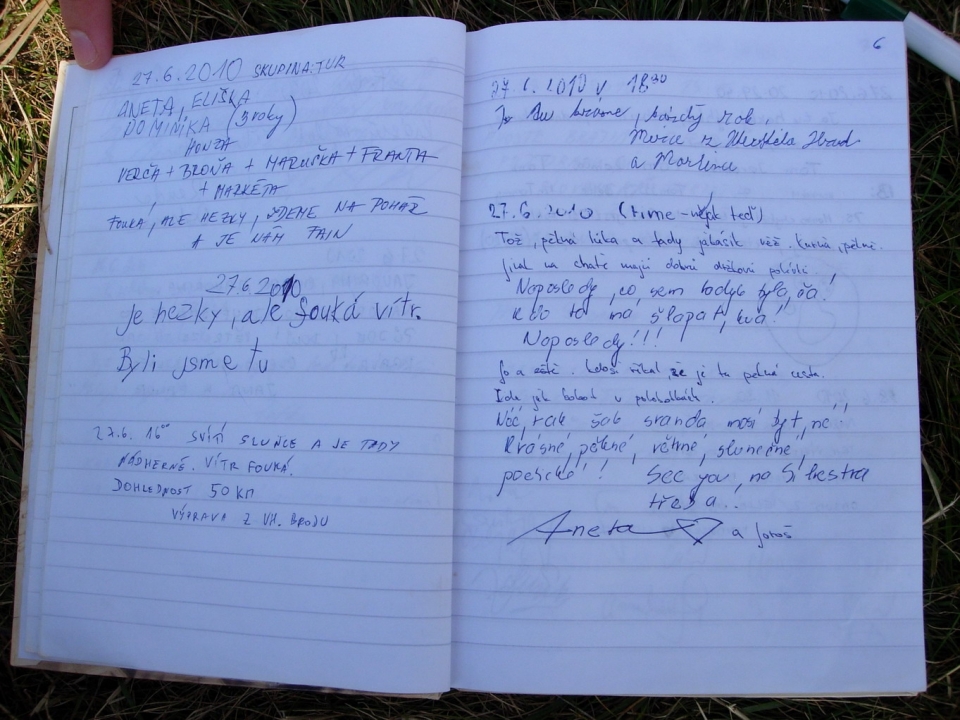 27.6.2010 SKUPINA: TUR
ANETA, ELIŠKA
DOMINIKA (3 roky)
HONZA
VERČA + BROŇA + MARUŠKA + FRANTA
+ MARKÉTA
FOUKÁ, ALE HEZKY, JDEME NA POHÁR
A JE NÁM FAJN
27.6.2010
Je hezky, ale fouká vítr.
Byli jsme tu
27.6. 16⁰⁰ SVÍTÍ SLUNCE A JE TADY
NÁDHERNĚ. VÍTR FOUKÁ.
DOHLEDNOST 50 KM
VÝPRAVA Z UH. BRODU
6
27.6.2010 v 16³⁰
Je tu krásně, každý rok,
z Brod
a Martina
27.6.2010 (time - teď)
Tož, pěkná lúka a tady jakásik věž.
Jinak na chatě majú dobrú
Naposledy, co sem tady byla, ča!
Kdo to má šlapat,
Naposledy!!!
Jo a eště. Kdosi říkal, že je tu pěkná cesta.
Ide jak v
Nóó, tak šak sranda mosí být, né!!
Krásné, pěkné, větrné, slunečné,
poetické!! See you, na Silvestra
třeba..
Aneta a